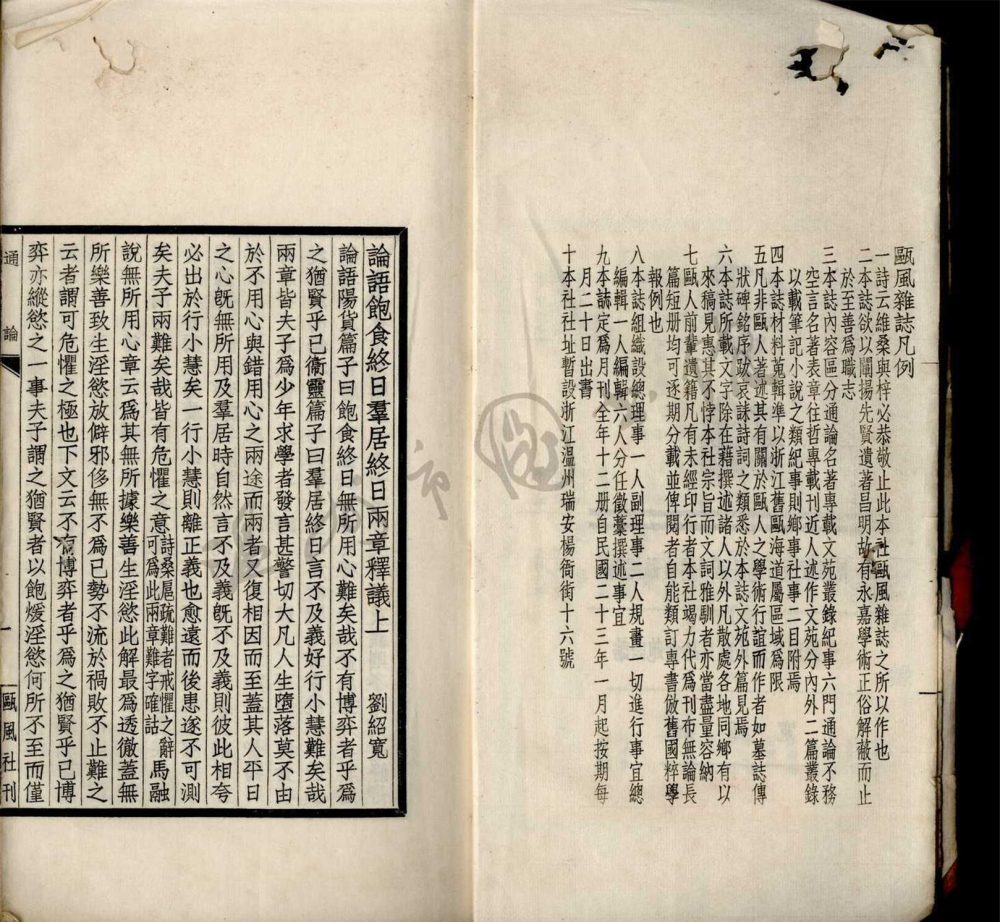 甌風雜誌凡例
一詩云維桑與梓必恭敬止此本社甌風雜誌之所以作也
二本誌欲以闡揚先賢遺著昌明故有永嘉學術正俗解蔽而止
於至善爲職志
三本誌內容區分通論名著專載文苑叢錄紀事六門通論不務
空言名著表章往哲專載刊近人述作文苑分內外二篇叢錄
以載筆記小說之類紀事則鄉事社事二目附焉
四本誌材料蒐輯準以浙江舊甌海道屬區域爲限
五凡非甌人著述其有關於甌人之學術行誼而作者如墓誌傳
狀碑銘序跋哀誄詩詞之類悉於本誌文苑外篇見焉
六本誌所載文字除在藉撰述諸人以外凡散處各地同鄉有以
來稿見惠其不悖本社宗旨而文詞雅馴者亦當盡量容納
七甌人前輩遺籍凡有未經印行者本社竭力代爲刊布無論長
篇短册均可逐期分載並俾閱者自能類訂專書倣舊國粹學
報例也
八本誌組織設總理事一人副理事二人規畫一切進行事宜總
編輯一人編輯六人分任徵藁撰述事宜
九本誌定爲月刊全年十二册自民國二十三年一月起按期每
月二十日出書
十本社社址暫設浙江溫州瑞安楊衙街十六號
論語飽食終日羣居終日兩章釋議上
劉紹寬
論語陽貨篇子曰飽食終日無所用心難矣哉不有博弈者乎爲
之猶賢乎已衞靈篇子曰羣居終日言不及義好行小慧難矣哉
兩章皆夫子爲少年求學者發言甚警切大凡人生墮落莫不由
於不用心與錯用心之兩途而兩者又復相因而至蓋其人平日
之心既無所用及羣居時自然言不及義既不及義則彼此相夸
必出於行小慧矣一行小慧則離正義也愈遠而後患遂不可測
矣夫子兩難矣哉皆有危懼之意詩桑扈疏難者戒懼之辭可爲此兩章難字確詁馬融
說無所用心章云爲其無所據樂善生淫慾此解最爲透徹蓋無
所樂善致生淫慾放僻邪侈無不爲已勢不流於禍敗不止難之
云者謂可危懼之極也下文云不有博弈者乎爲之猶賢乎已博
弈亦縱慾之一事夫子謂之猶賢者以飽煖淫慾何所不至而僅
通論
一
甌風社刊